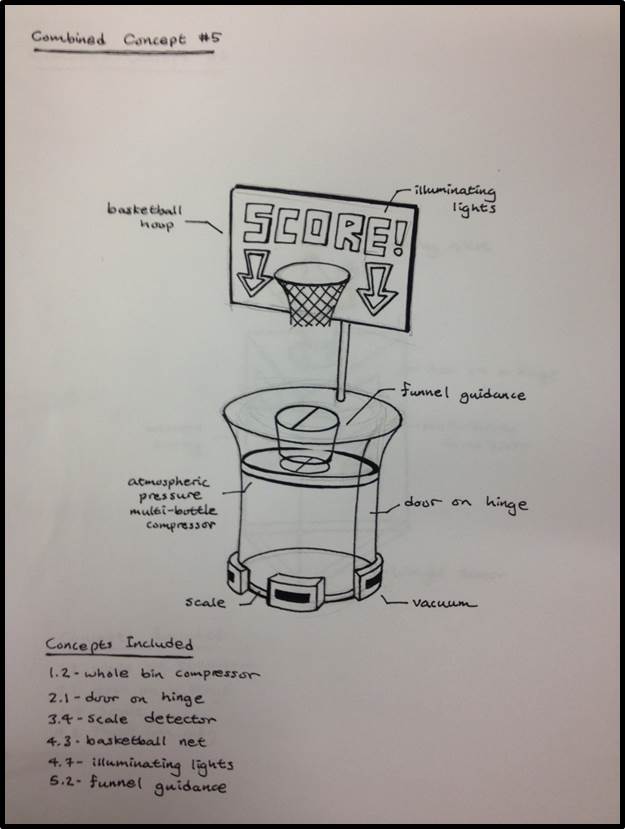 Combined Concept #5
illuminating
lights
basketball
hoop
SCORE!
funnel guidance
atmospheric
pressure
multi-bottle
compressor
door on hinge
scale
vacuum
Concepts Included
1.2 - whole bin compressor
2.1 - door on hinge
3.4 - scale detector
4.3 - basketball net
4.7 - illuminating lights
5.2 - funnel guidance